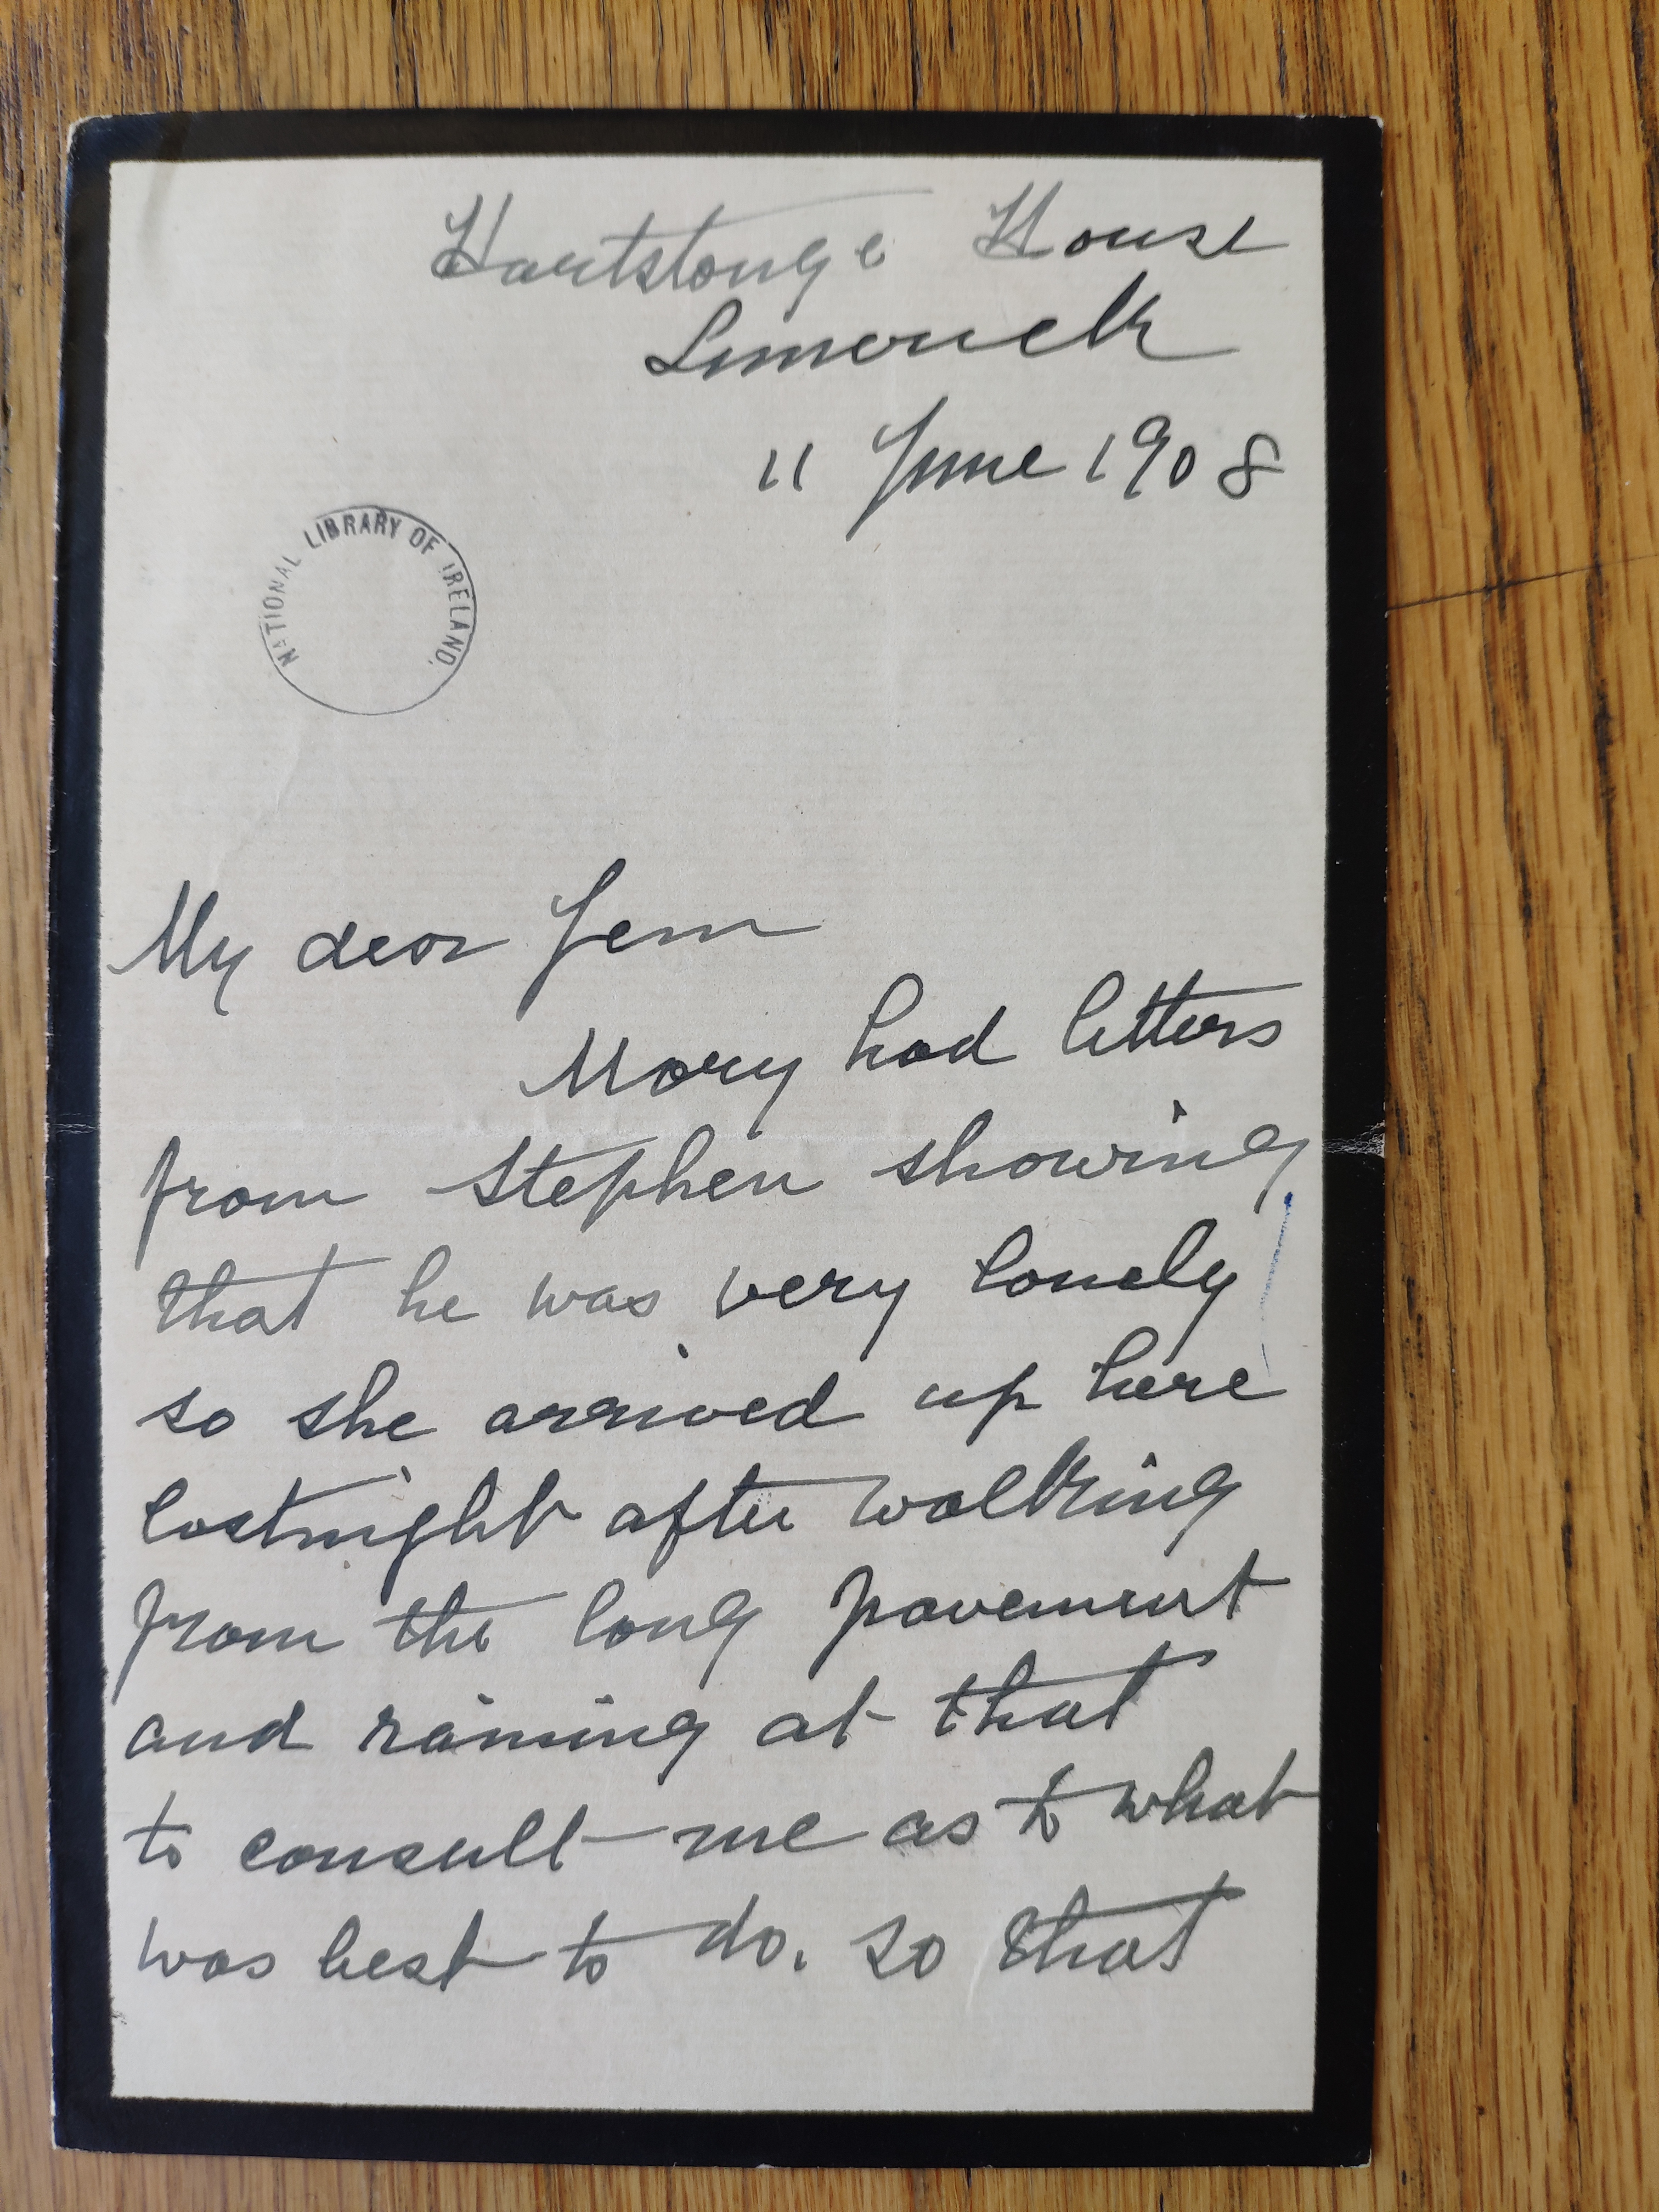 Hartstonge House
Limerick
11 June 1908
NATIONAL LIBRARY OF IRELAND.
My dear Jem
Mary had letters
from Stephen showing
that he was very lonely
so she arrived up here
lastnight after walking
from the long pavement
and raining at that
to consult me as to what
was best to do. so that